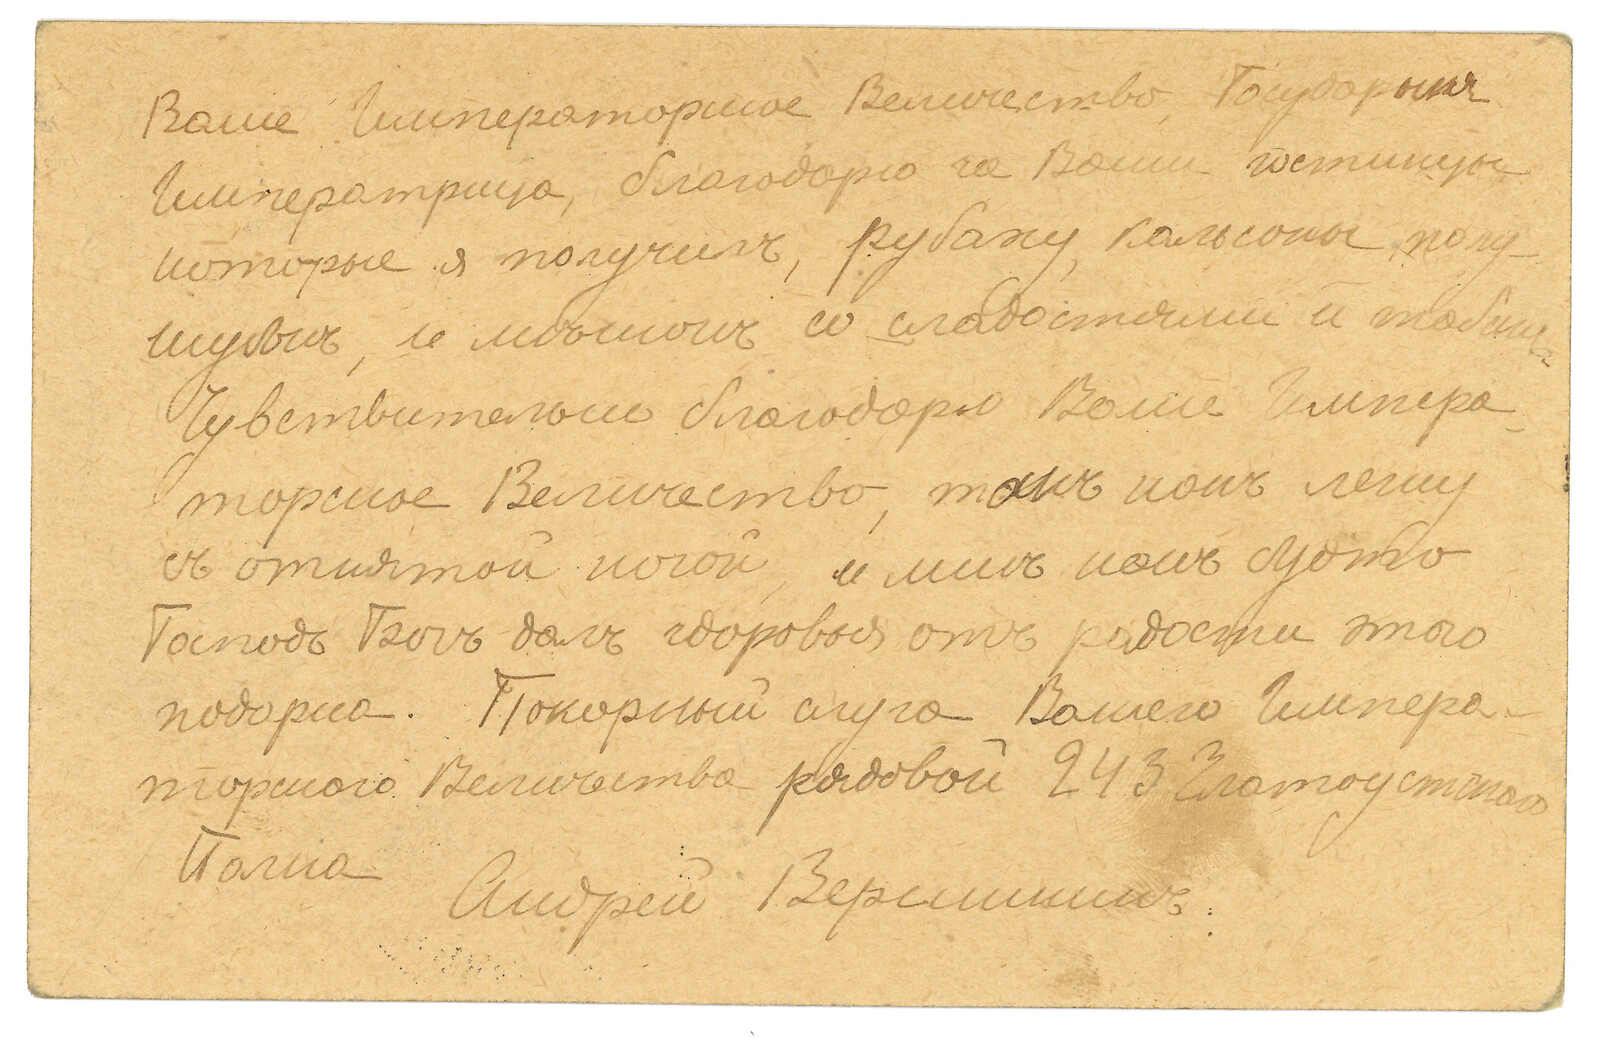 Ваше Императорское Величество, Государыня
Императрица, благодарю за Ваши гостинцы
которые я получилъ, рубаху, кальсоны, полу-
шубокъ, и мѣшокъ со сладостями и табакъ.
Чувствительно благодарю Ваше Импера-
торское Величество, такъ какъ лежу
съ отнятой ногой, и мнѣ какъ будто
Господь Богъ далъ здоровья отъ радости этого
подарка. Покорный слуга Вашего Импера-
торскаго Величества рядовой 243 Златоустскаго
Полка
Андрей